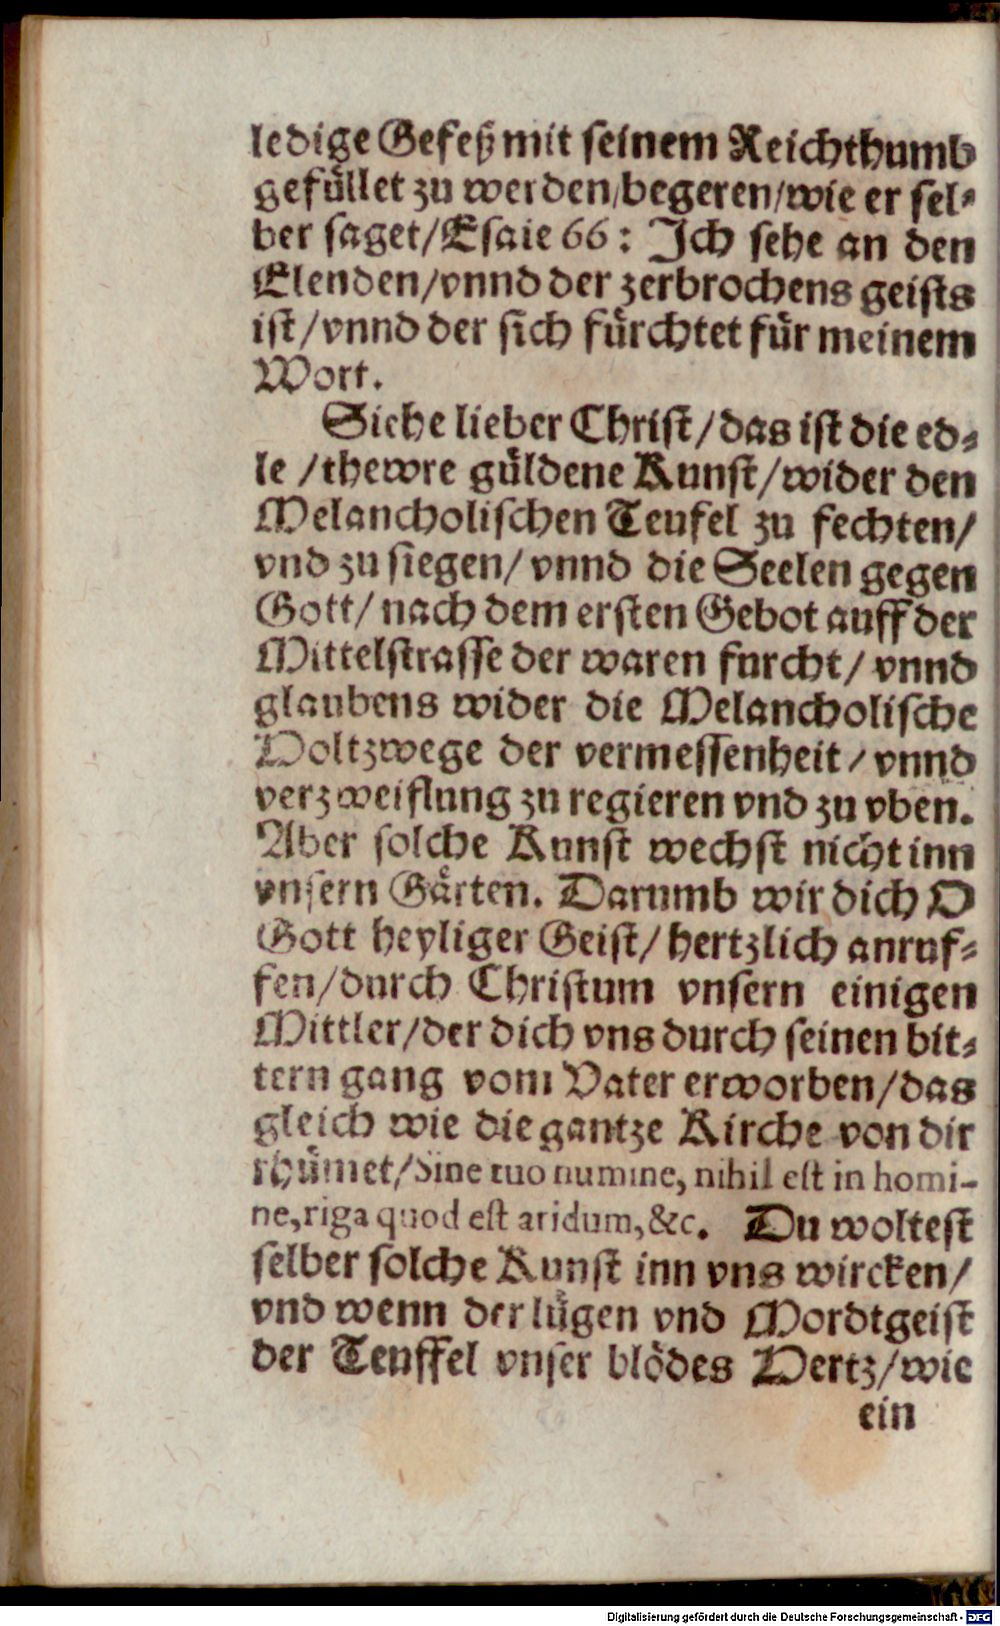 ledige Gefeß mit seinem Reichthumb
gefüllet zu werden/begeren/wie er sel⸗
ber saget/Esaie 66: Ich sehe an den
Elenden/vnnd der zerbrochens geists
ist/vnnd der sich fürchtet für meinem
Wort.
Siehe lieber Christ/das ist die ed⸗
le /thewre güldene Kunst/wider den
Melancholischen Teufel zu fechten/
vnd zu siegen/ vnnd die Seelen gegen
Gott/ nach dem ersten Gebot auff der
Mittelstrasse der waren furcht/ vnnd
glaubens wider die Melancholische
Holtzwege der vermessenheit/ vnnd
verzweiflung zu regieren vnd zu vben.
Aber solche Kunst wechst nicht inn
vnsern Gärten. Darumb wir dich O
Gott heyliger Geist/ hertzlich anruf⸗
fen/durch Christum vnsern einigen
Mittler/der dich vns durch seinen bit⸗
tern gang vom Vater erworben/das
gleich wie die gantze Kirche von dir
rhümet/Sine tuo numine, nihil est in homi-
ne,riga quod est aridum,&c. Du woltest
selber solche Kunst inn vns wircken/
vnd wenn der lügen vnd Mordtgeist
der Teuffel vnser blödes Hertz/wie
ein
Digitalisierung gefördert durch die Deutsche Forschungsgemeinschaft - DFG